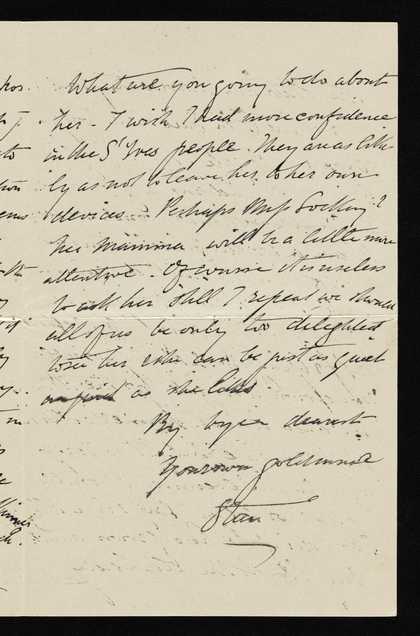 What are you going to do about
her - I wish I had more confidence
in the St Ives people. They are as like-
ly as not to leave her to her own
devices. Perhaps Miss
her mamma will be a little more
attentive. Of course it is useless
to ask her still I repeat we should
all of us be only too delighted
to see her & she can be just as quiet
as she likes
By bye dearest
Your own
Stan